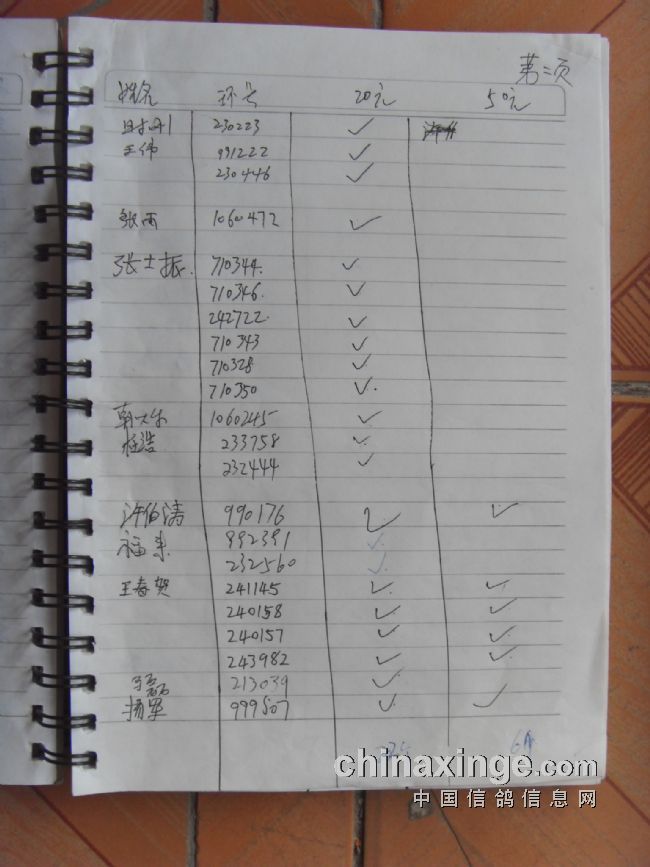 第二页
姓名 环号 20元 50元
230223 ✓
王伟 991222 ✓
230446 ✓
张丙 1060472 ✓
张士振. 710344. ✓
710346. ✓
242722. ✓
710343 ✓
710328 ✓
710350 ✓
1060245 ✓
任浩 233758 ✓
232444 ✓
许伯涛 990176 ✓ ✓
福来 892391 ✓
232560 ✓
王春贺 241145 ✓ ✓
240158 ✓ ✓
240157 ✓ ✓
243982 ✓ ✓
213039 ✓
杨军 999507 ✓ ✓
6个
chinaxinge.com
中国信鸽信息网